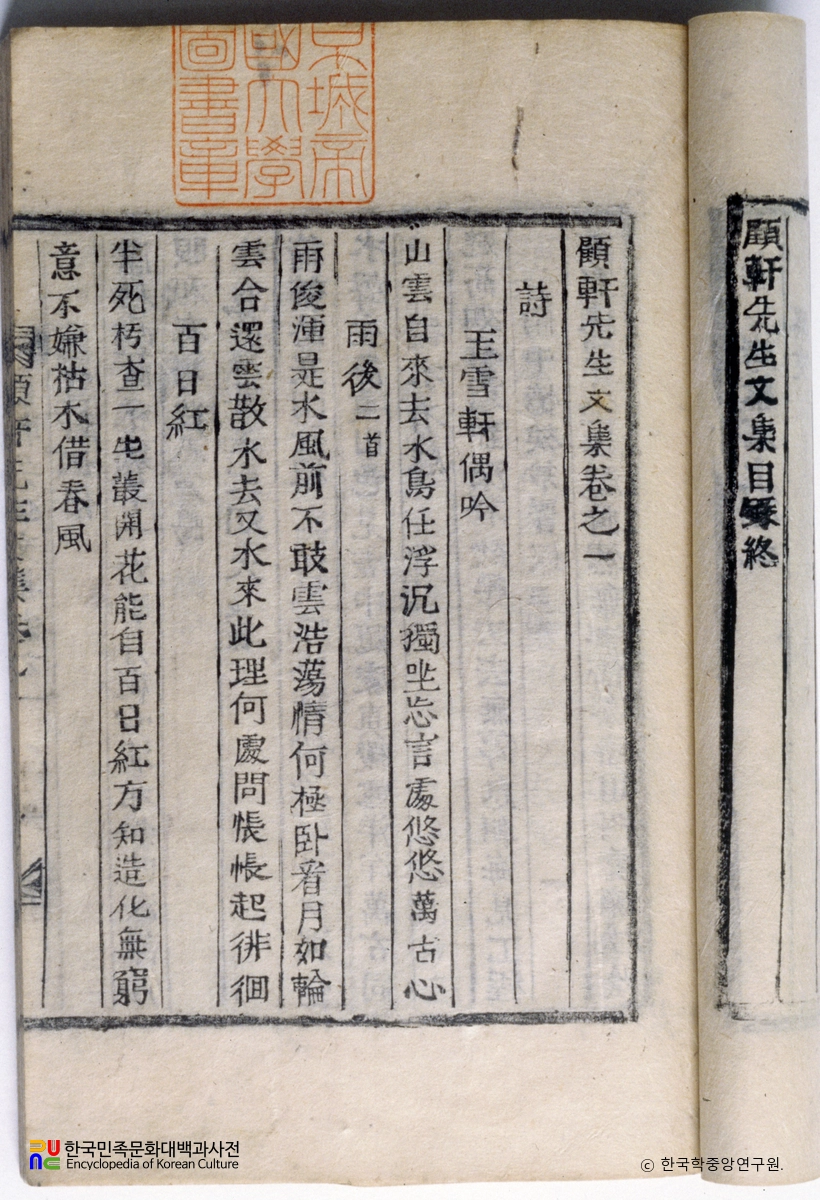 顧軒先生文集目錄終
京城帝
國大學
圖書章
顧軒先生文集卷之一
詩
玉雪軒偶吟
山雲自來去水鳥任浮沉獨坐忘言處悠悠萬古心
雨後二首
雨後渾是水風前不敢雲浩蕩情何極卧看月如輪
雲合還雲散水去又水來此理何處問悵悵起徘徊
百日紅
半死朽查一出叢開花能自百日紅方知造化無窮
意不嫌枯木借春風
한국민족문화대백과사전
Encyclopedia of Korean Culture
ⓒ 한국학중앙연구원.